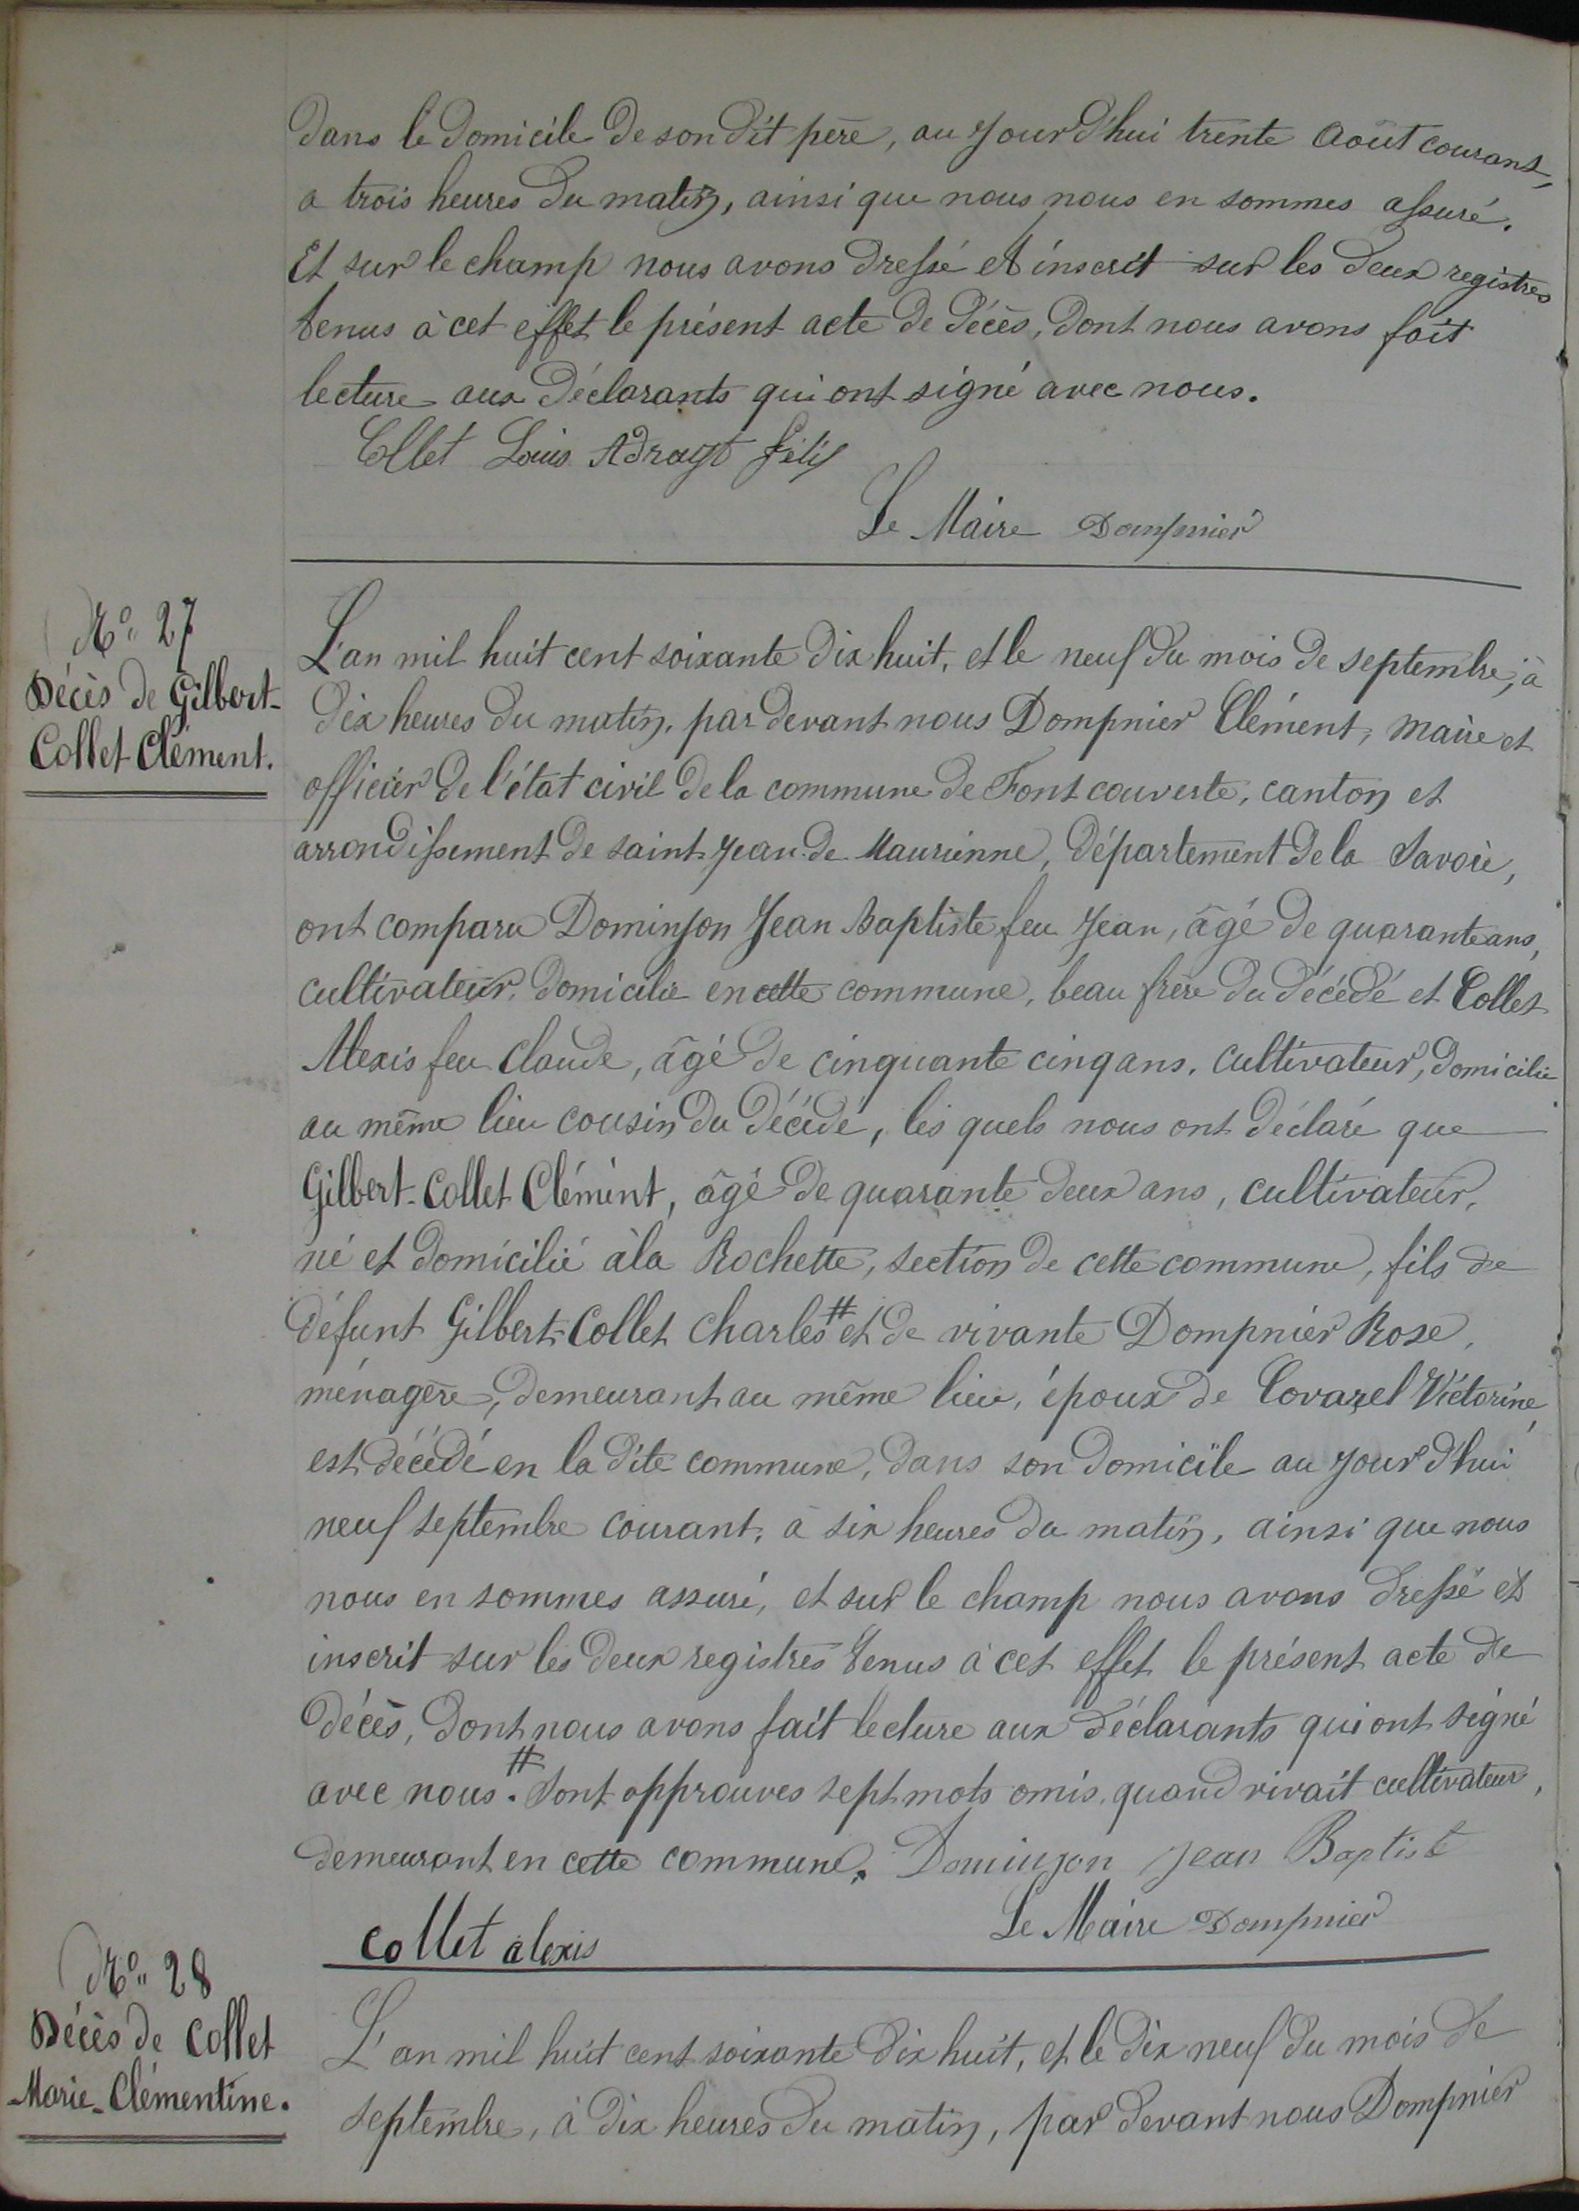 dans le domicile de son dit père, au jour d'hui trente août courant,
a trois heures du matin, ainsi que nous nous en sommes assuré.
Et sur le champ nous avons dressé et inscrit sur les deux registres
tenus à cet effet le présent acte de décès, dont nous avons fait
lecture aux déclarants qui ont signé avec nous.
Collet Louis Adrayt félix
Le Maire Dompnier
N° 27
Décès de Gilbert-
Collet Clément.
L'an mil huit cent soixante dix huit, et le neuf du mois de septembre, à
dix heures du matin, par devant nous Dompnier Clément, maire et
officier de l'état civil de la commune de Font couverte, canton et
arrondissement de saint Jean de Maurienne, département de la Savoie,
ont comparu Dominjon Jean Baptiste feu Jean, âgé de quarante ans,
cultivateur, domicilié en cette commune, beau frère du décédé et Collet
Alexis feu Claude, âgé de cinquante cinq ans, cultivateur, domicilié
au même lieu cousin du décédé, les quels nous ont déclaré que
Gilbert-Collet Clément, âgé de quarante deux ans, cultivateur,
né et domicilié à la Rochette, section de cette commune, fils de
défunt Gilbert-Collet Charles # et de vivante Dompnier Rose,
ménagère, demeurant au même lieu, époux de Covarel Victorine,
est décédé en la dite commune, dans son domicile au jour d'hui
neuf septembre courant, à six heures du matin, ainsi que nous
nous en sommes assuré, et sur le champ nous avons dressé et
inscrit sur les deux registres tenus à cet effet le présent acte de
décès, dont nous avons fait lecture aux déclarants qui ont signé
avec nous. # Sont approuvés sept mots omis, quand vivait cultivateur,
demeurant en cette commune. Dominjon Jean Baptiste
Le Maire Dompnier
collet alexis
N° 28
Décès de Collet
Marie-Clémentine.
L'an mil huit cent soixante dix huit, et le dix neuf du mois de
septembre, à dix heures du matin, par devant nous Dompnier